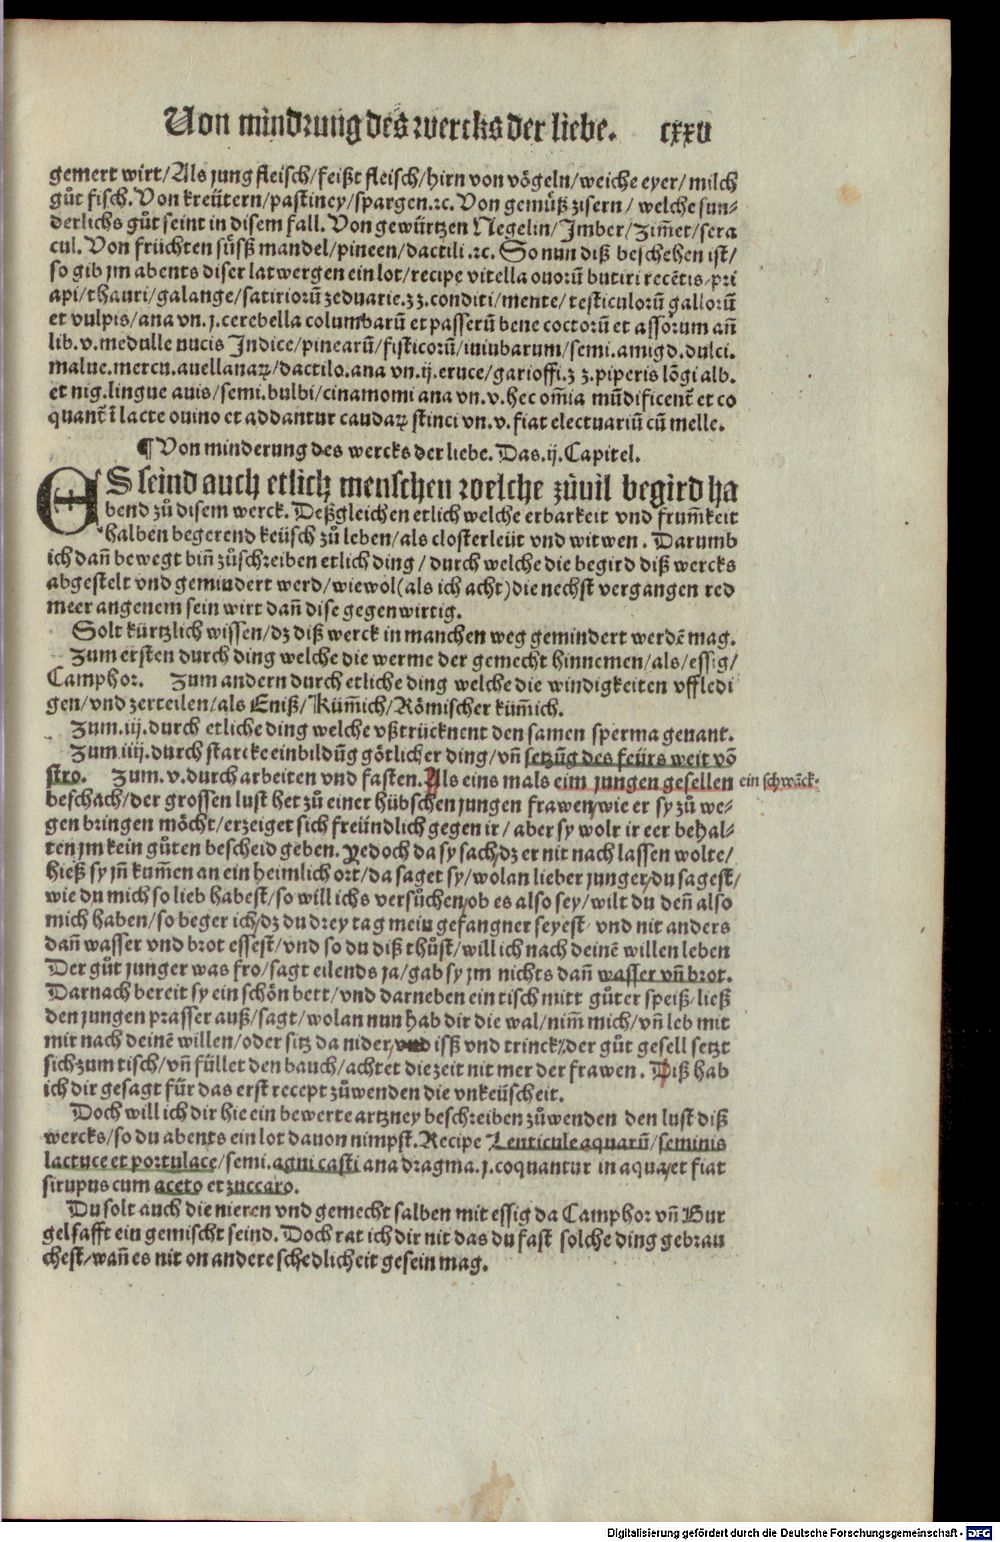 Von mindrung des wercks der liebe. cxxv
gemert wirt/Als jung fleisch/feißt fleisch/hirn von vögeln/weiche eyer/milch
gůt fisch. Von kreütern/pastiney/spargen.⁊c. Von gemůß zisern/ welche sun⸗
derlichs gůt seint in disem fall. Von gewürtzen Negelin/Imber/zim̃et/sera
cul. Von früchten süsß mandel/pineen/dactili .⁊c. So nun diß beschehen ist/
so gib jm abents diser latwergen ein lot/recipe vitella ouorũ butiri recẽtis/pri
api/thauri/galange/satiriorũ zeduarie.ʒʒ.conditi/mente/testiculorũ gallorũ
et vulpis/ana vn.j.cerebella columbarũ et passerũ bene coctorũ et assorum añ
lib.v.medulle nucis Indice/pinearũ/fisticorũ/iuiubarum/semi.amigd.dulci.
malue.mercu.auellanaꝝ/dactilo.ana vn.ij.eruce/garioffi.ʒ ʒ.piperis lõgi alb.
et nig.lingue auis/semi.bulbi/cinamomi ana vn.v.hec om̃ia mũdificent̃ et co
quant̃ ĩ lacte ouino et addantur caudaꝝ stinci vn.v.fiat electuariũ cũ melle.
¶Von minderung des wercks der liebe. Das.ij.Capitel.
ES seind auch etlich menschen welche zůuil begird ha
bend zů disem werck. Deßgleichen etlich welche erbarkeit vnd frum̃keit
halben begerend keüsch zů leben/als closterleüt vnd witwen. Darumb
ich dañ bewegt biñ zůschreiben etlich ding/durch welche die begird diß wercks
abgestelt vnd gemindert werd/wiewol(als ich acht)die nechst vergangen red
meer angenem sein wirt dañ dise gegenwirtig.
Solt kürtzlich wissen/dz diß werck in manchen weg gemindert werdẽ mag.
Zum ersten durch ding welche die werme der gemecht hinnemen/als/essig/
Camphor. Zum andern durch etliche ding welche die windigkeiten vffledi
gen/vnd zerteilen/als Eniß/Küm̃ich/Römischer küm̃ich.
Zum.iij.durch etliche ding welche vßtrücknent den samen sperma genant.
Zum iiij.durch starcke einbildũg götlicher ding/vñ setzũg des feürs weit võ
stro. Zum.v.durch arbeiten vnd fasten. Als eins mals eim jungen gesellen ein schwãck⸗
beschach/der grossen lust het zů einer hübschen jungen frawen/wie er sy zů we⸗
gen bringen möcht/erzeiget sich freündlich gegen ir/aber sy wolt ir eer behal⸗
ten jm kein gůten bescheid geben. Yedoch da sy sach/dz er nit nach lassen wolte/
hieß sy jñ kum̃en an ein heimlich ort/da saget sy/wolan lieber junger/du sagest/
wie du mich so lieb habest/so will ichs versůchen/ob es also sey/wilt du deñ also
mich haben/so beger ich/dz du drey tag mein gefangner seyest/ vnd nit anders
dañ wasser vnd brot essest/vnd so du diß thůst/will ich nach deinẽ willen leben
Der gůt junger was fro/sagt eilends ja/gab sy jm nichts dañ wasser vñ brot.
Darnach bereit sy ein schön bett/vnd darneben ein tisch mitt gůter speiß/ließ
den jungen prasser auß/sagt/wolan nun hab dir die wal/nim̃ mich/vñ leb mit
mir nach deinẽ willen/oder sitz da nider/vnd isß vnd trinck/der gůt gesell setzt
sich zum tisch/vñ füllet den bauch/achtet die zeit nit mer der frawen. Diß hab
ich dir gesagt für das erst recept zůwenden die vnkeüscheit.
Doch will ich dir hie ein bewerte artzney beschreiben zůwenden den lust diß
wercks/so du abents ein lot dauon nimpst. Recipe Lenticule aquarũ/seminis
lactuce et portulace/semi.agni casti ana dragma.j.coquantur in aqua/et fiat
sirupus cum aceto et zuccaro.
Du solt auch die nieren vnd gemecht salben mit essig da Camphor vñ Bur
gelsafft ein gemischt seind. Doch rat ich dir nit das du fast solche ding gebrau
chest/wañ es nit on andere schedlicheit gesein mag.
Digitalisierung gefördert durch die Deutsche Forschungsgemeinschaft - DFG